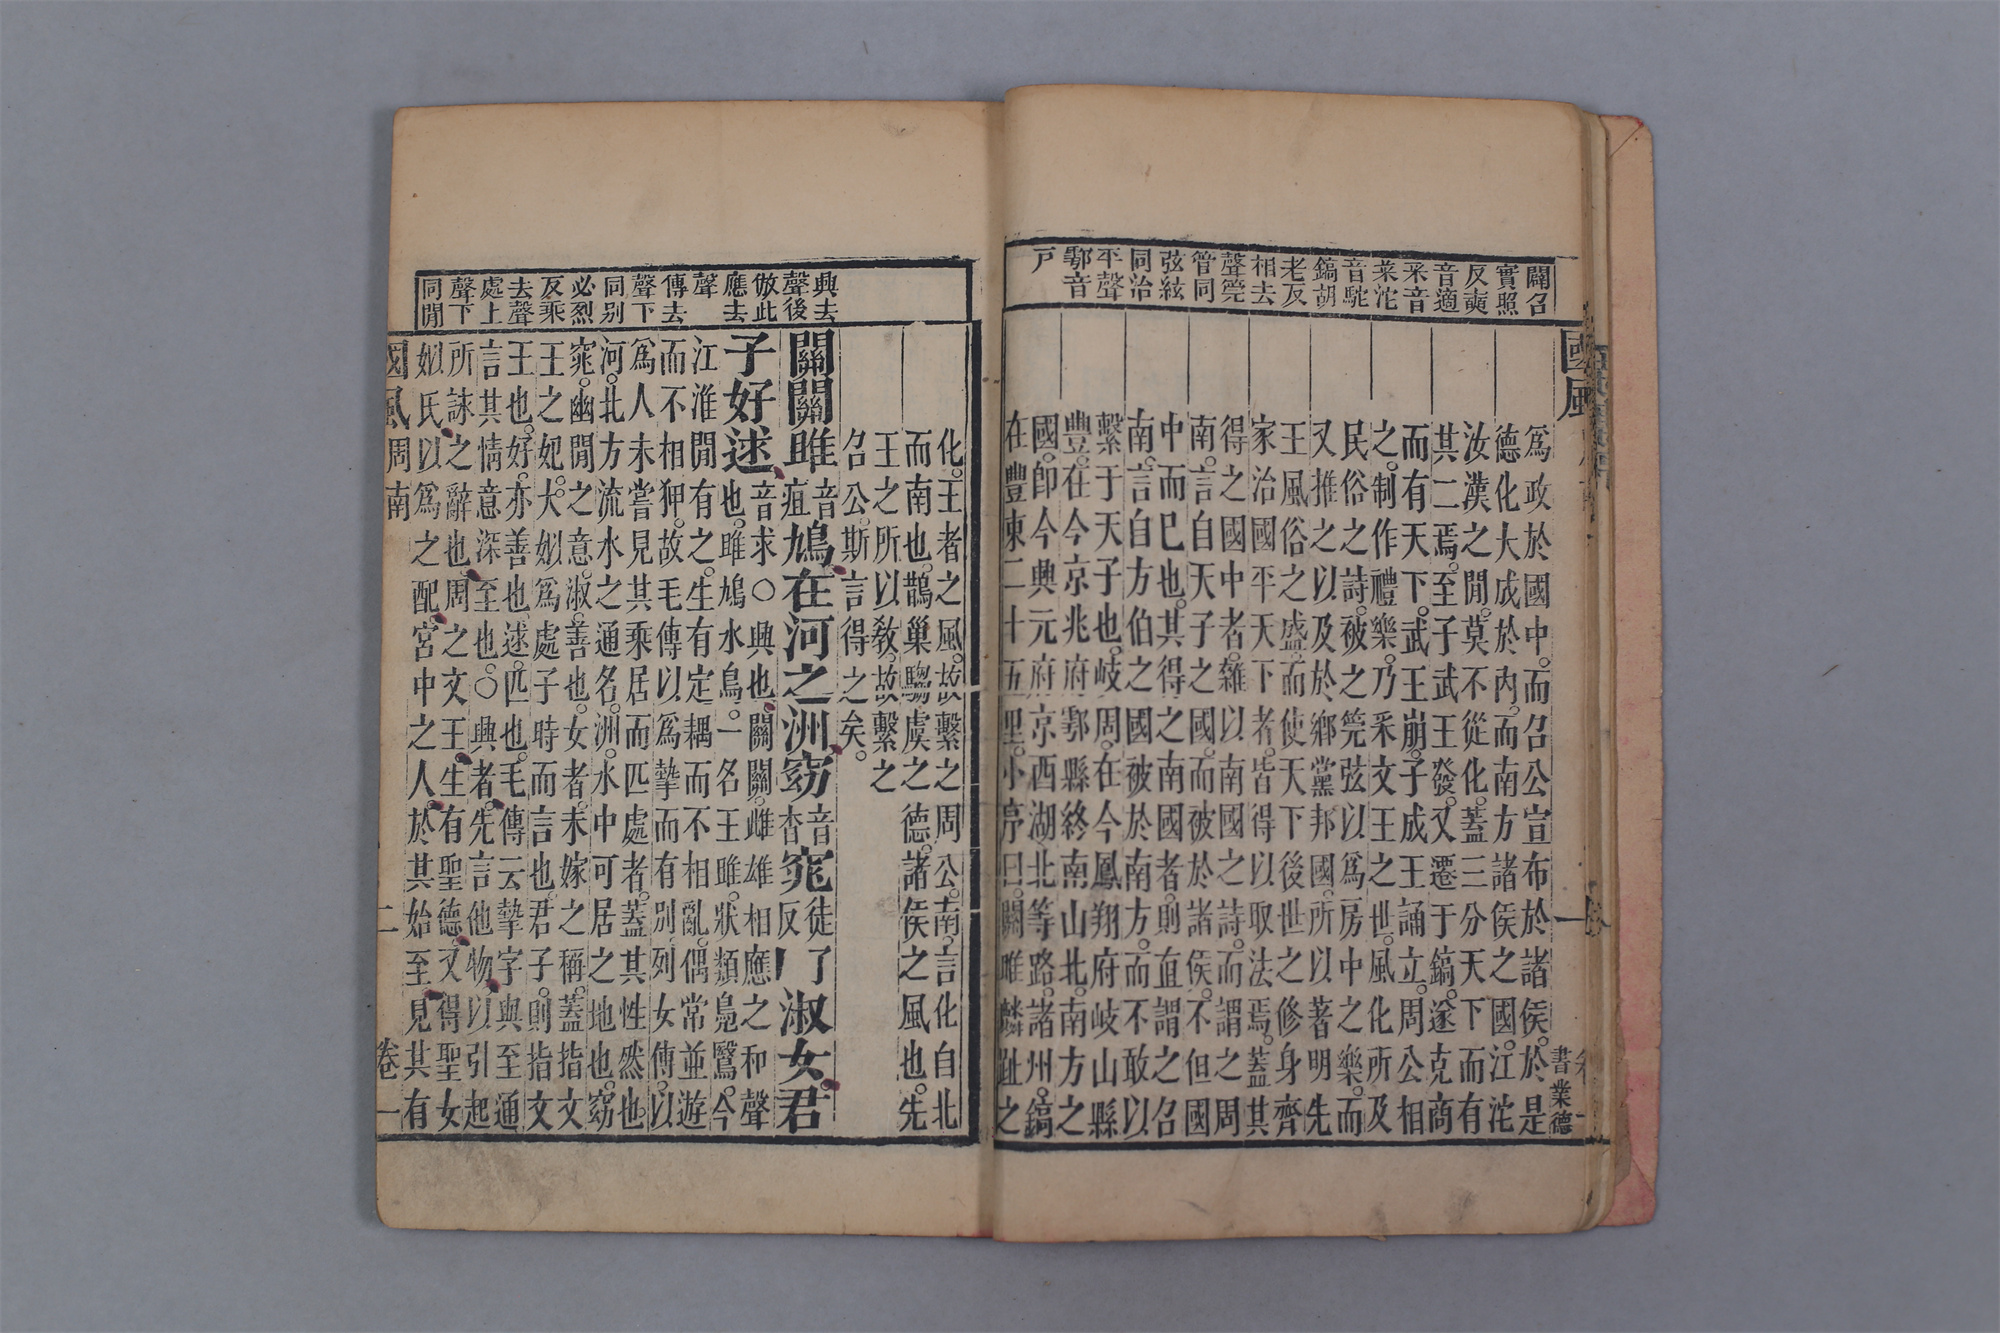 闢召
實照
反奭
音適
釆音
菜沱
音駝
鎬胡
老反
相去
聲筦
管同
弦絃
同治
平聲
鄠音
戶
國風
一
書業德
為政於國中。而召公宣布於諸侯。於是
德化大成於內。而南方諸侯之國。江沱
汝漢之閒。莫不從化。蓋三分天下而有
其二焉。至子武王發。又遷于鎬。遂克商
而有天下。武王崩。子成王誦立。周公相
之。制作禮樂。乃采文王之世。風化所及
民俗之詩。被之筦弦以為房中之樂。而
又推之以及於鄉黨邦國。所以著明先
王風俗之盛。而使天下後世之修身齊
家治國平天下者。皆得以取法焉。蓋其
得之國中者。雜以南國之詩。而謂之周
南。言自天子之國。而被於諸侯。不但國
中而已也。其得之南國者。則直謂之召
南。言自方伯之國。被於南方。而不敢以
繫于天子也。岐周。在今鳳翔府岐山縣
豐。在今京兆府鄠縣終南山北。南方之
國。即今興元府京西湖北等路諸州。鎬
在豐東二十五里。小序曰。關雎麟趾之
興去
聲後
倣此
應去
聲
傳去
聲下
同別
必烈
反乘
去聲
處上
聲下
同閒
化。王者之風。故繫之周公。南。言化自北
而南也。鵲巢騶虞之德。諸侯之風也。先
王之所以教。故繫之
召公。斯言得之矣。
關關雎音疽鳩。在河之洲。窈音杳窕徒了反淑女。君
子好逑音求○興也。關關。雌雄相應之和聲
也。雎鳩水鳥。一名王雎。狀類鳧鷖。今
江淮閒有之。生有定耦而不相亂。偶常並遊
而不相狎。故毛傳以為摯而有別。列女傳以
為人未嘗見其乘居而匹處者。蓋其性然也。
河。北方流水之通名。洲。水中可居之地也。窈
窕。幽閒之意。淑。善也。女者。未嫁之稱。蓋指文
王之妃大姒為處子時而言也。君子。則指文
王也。好。亦善也。逑。匹也。毛傳云摯字與至通
言其情意深至也。○興者。先言他物。以引起
所詠之辭也。周之文王。生有聖德。又得聖女
姒氏以為之配。宮中之人。於其始至。見其有
國風
周南
二
卷一